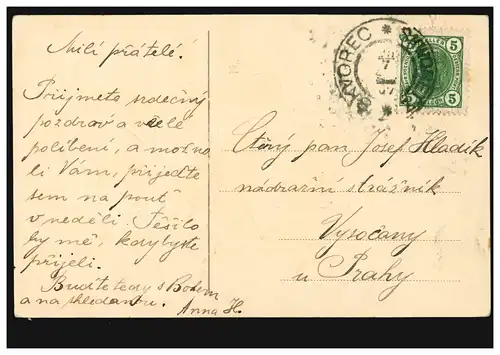 Milí přátelé.
Přijmete srdečný
pozdrav a velé
políbení, a možno
li Vám, přijeďte
sem na pouť
v neděli. Těšilo
by mě, kdybyste
přijeli.
Buďte tedy s Bohem
a na shledanou.
Anna H.
ŠKVOREC
5 5
Ctěný pan Josef Hladík
nádražní strážník
Vysočany
u Prahy